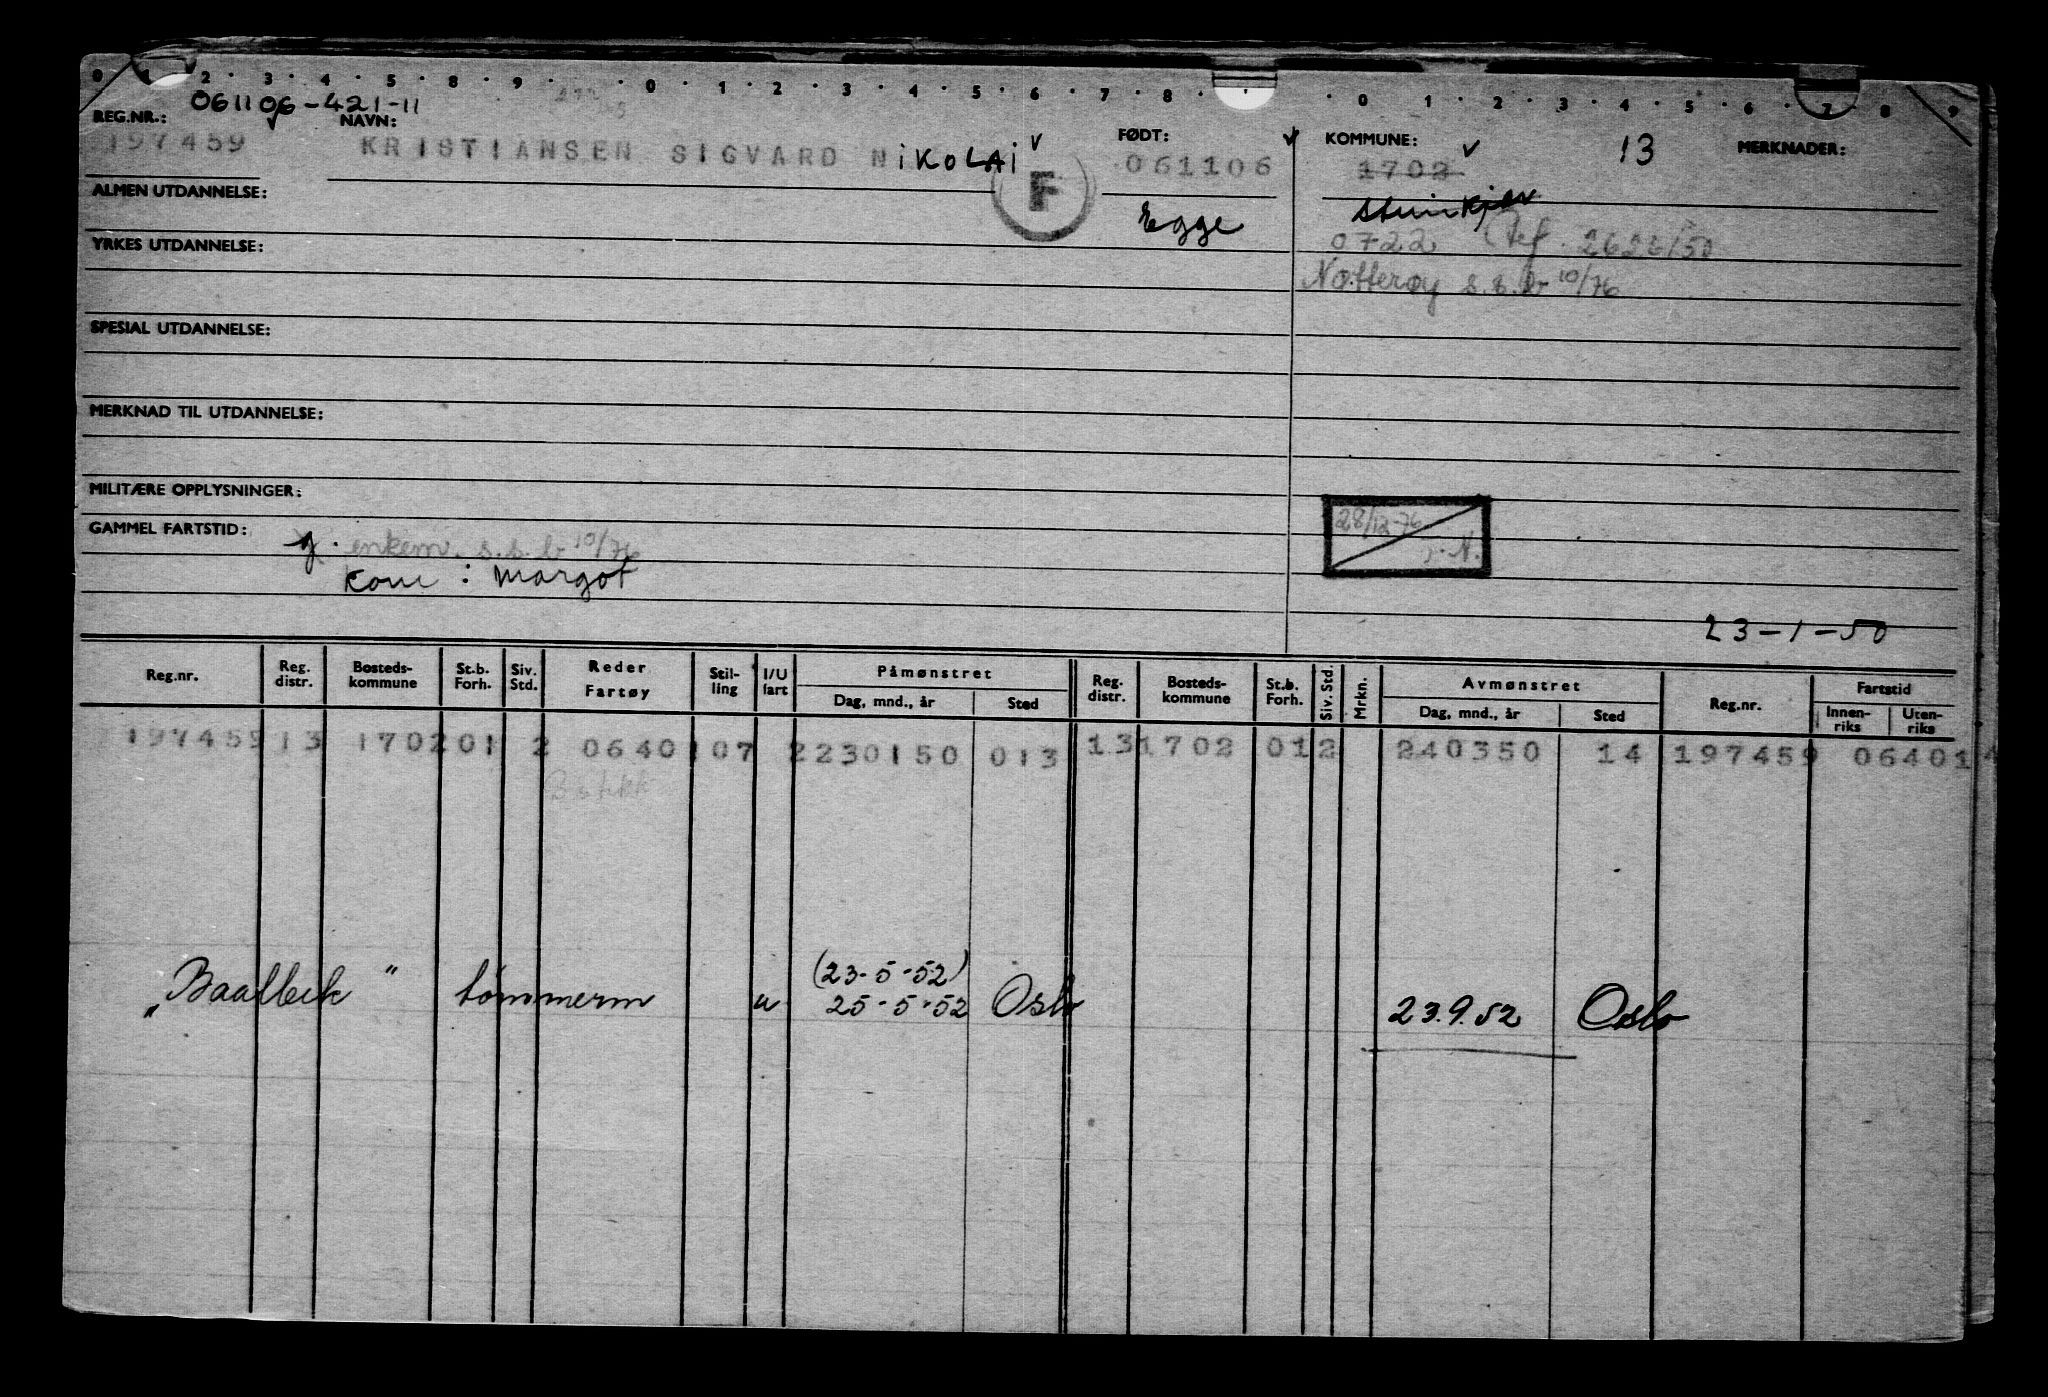 0 1 2 3 4 5 8 9 0 1 2 3 4 5 6 7 8 0 1 2 3 4 5 6 7 8 9
061106-421-11
REG.NR.: NAVN: FØDT: KOMMUNE: 13 MERKNADER:
197459 KRISTIANSEN SIGVARD NIKOLAI F 061106 1702
ALMEN UTDANNELSE: Egge Steinkjer
YRKES UTDANNELSE: 0722
Nøtterøy s.s.b 10/76
SPESIAL UTDANNELSE:
MERKNAD TIL UTDANNELSE:
MILITÆRE OPPLYSNINGER:
28/12-76
GAMMEL FARTSTID: g. enkem. s.s.b 10/76
Kone: Margot
23-1-50
Reg.nr. Reg. distr. Bosteds-kommune St.b. Forh. Siv. Std. Reder Fartøy Stil-ling I/U fart Påmønstret Reg. distr. Bosteds-kommune St.b. Forh. Siv. Std. Mrkn. Avmønstret Reg.nr. Fartstid
Dag, mnd., år Sted Dag, mnd., år Sted Innen-riks Uten-riks
197459 13 1702 01 2 0640 107 2230150 013 13 1702 01 2 240350 14 197459 06401 4
(23-5-52)
"Baalbek" tømmerm u 25-5-52 Oslo 23.9.52 Oslo